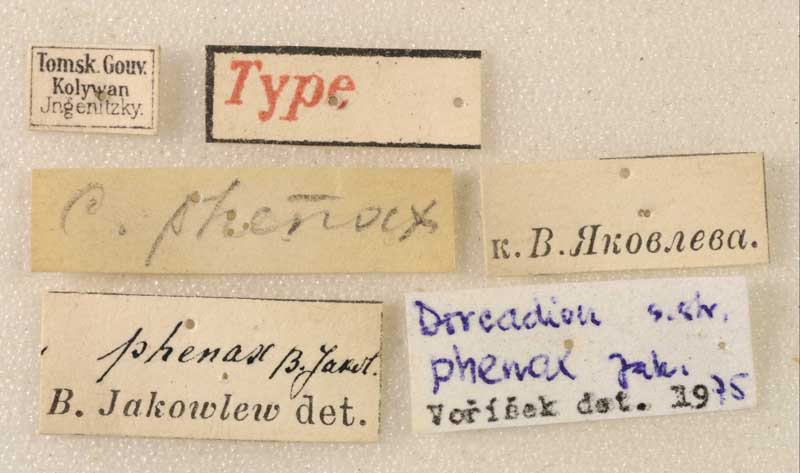 Tomsk. Gouv.
Kolywan
Jngenitzky.
Type
C. phenax
к. В. Яковлева.
phenax B. Jakol.
B. Jakowlew det.
Dorcadion s. str.
phenax Jak.
Voříšek det. 1975